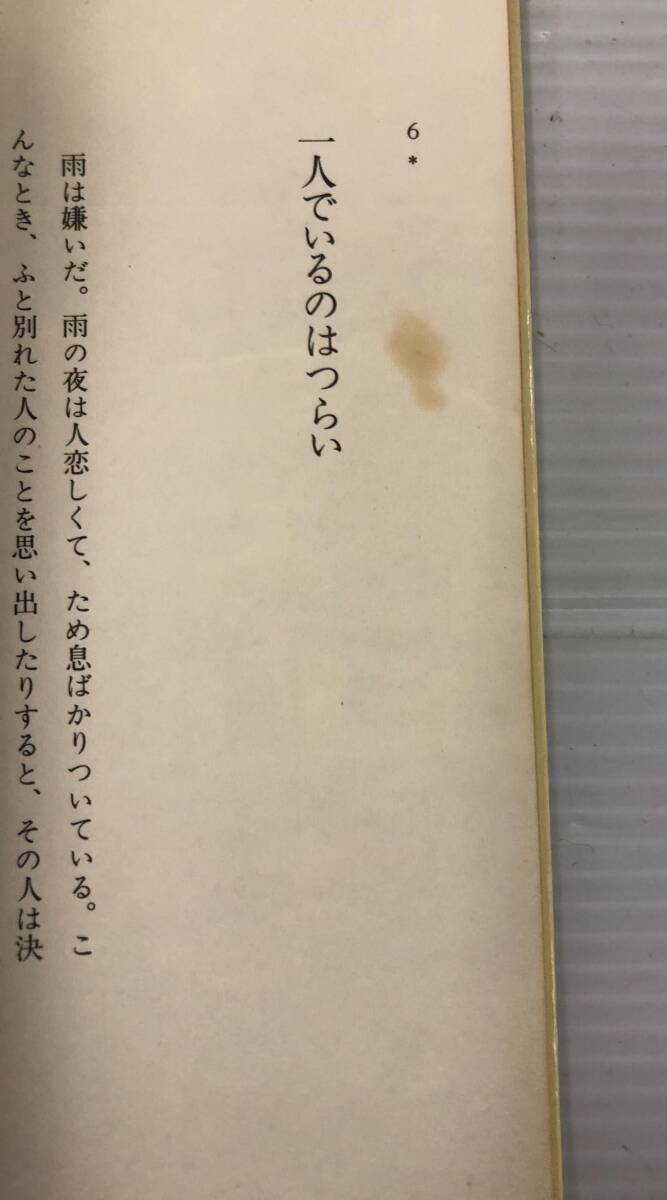 6*
一人でいるのはつらい
雨は嫌いだ。雨の夜は人恋しくて、ため息ばかりついている。こ
んなとき、ふと別れた人のことを思い出したりすると、その人は決